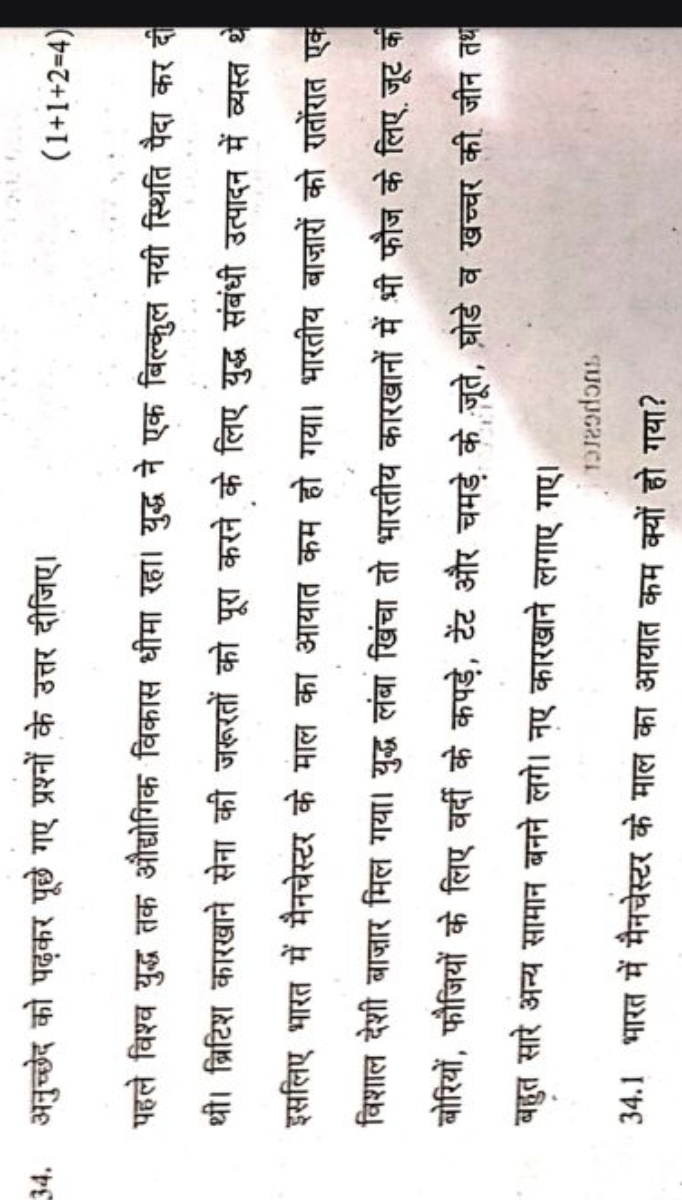 34. अनुच्छेद को पढ़कर पूछे गए प्रश्नों के उत्तर दीजिए। (1+1+2=4)
पहले विश्व युद्ध तक औद्योगिक विकास धीमा रहा। युद्ध ने एक बिल्कुल नयी स्थिति पैदा कर दी
थी। ब्रिटिश कारखाने सेना की जरूरतों को पूरा करने के लिए युद्ध संबंधी उत्पादन में व्यस्त थे
इसलिए भारत में मैनचेस्टर के माल का आयात कम हो गया। भारतीय बाज़ारों को रातोंरात एक
विशाल देशी बाज़ार मिल गया। युद्ध लंबा खिंचा तो भारतीय कारखानों में भी फौज के लिए जूट की
बोरियों, फौजियों के लिए वर्दी के कपड़े, टेंट और चमड़े के जूते, घोडे व खच्चर की जीन तथ
बहुत सारे अन्य सामान बनने लगे। नए कारखाने लगाए गए।
34.1 भारत में मैनचेस्टर के माल का आयात कम क्यों हो गया?